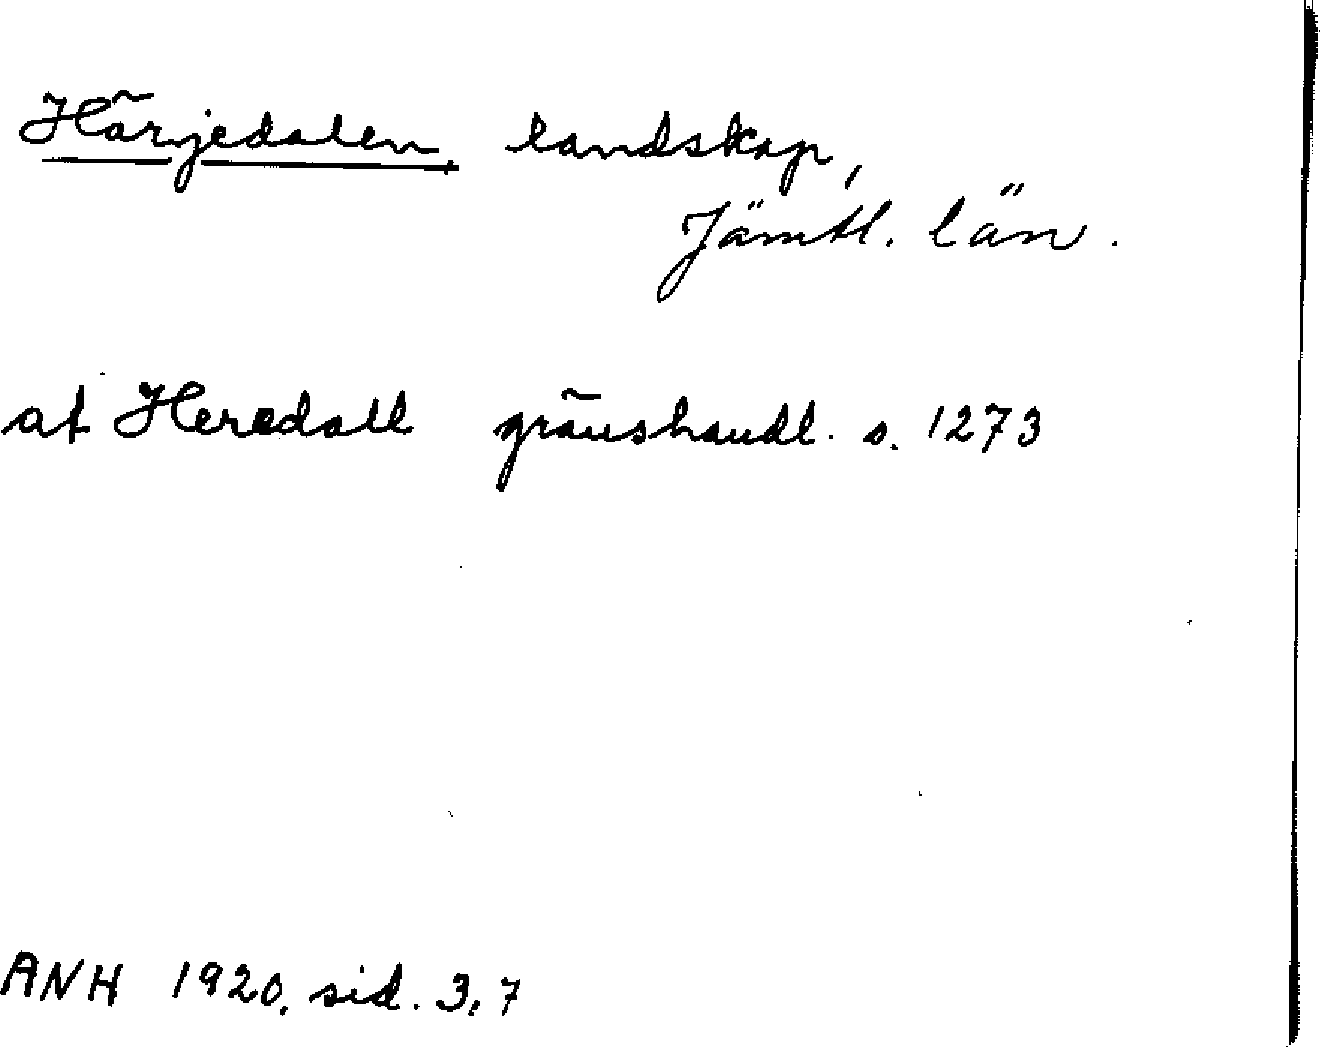 Härjedalen landskap,
Jämtl. län.
af Heredall gränshandl. s. 1273
ANH 1920, sid. 3, 7